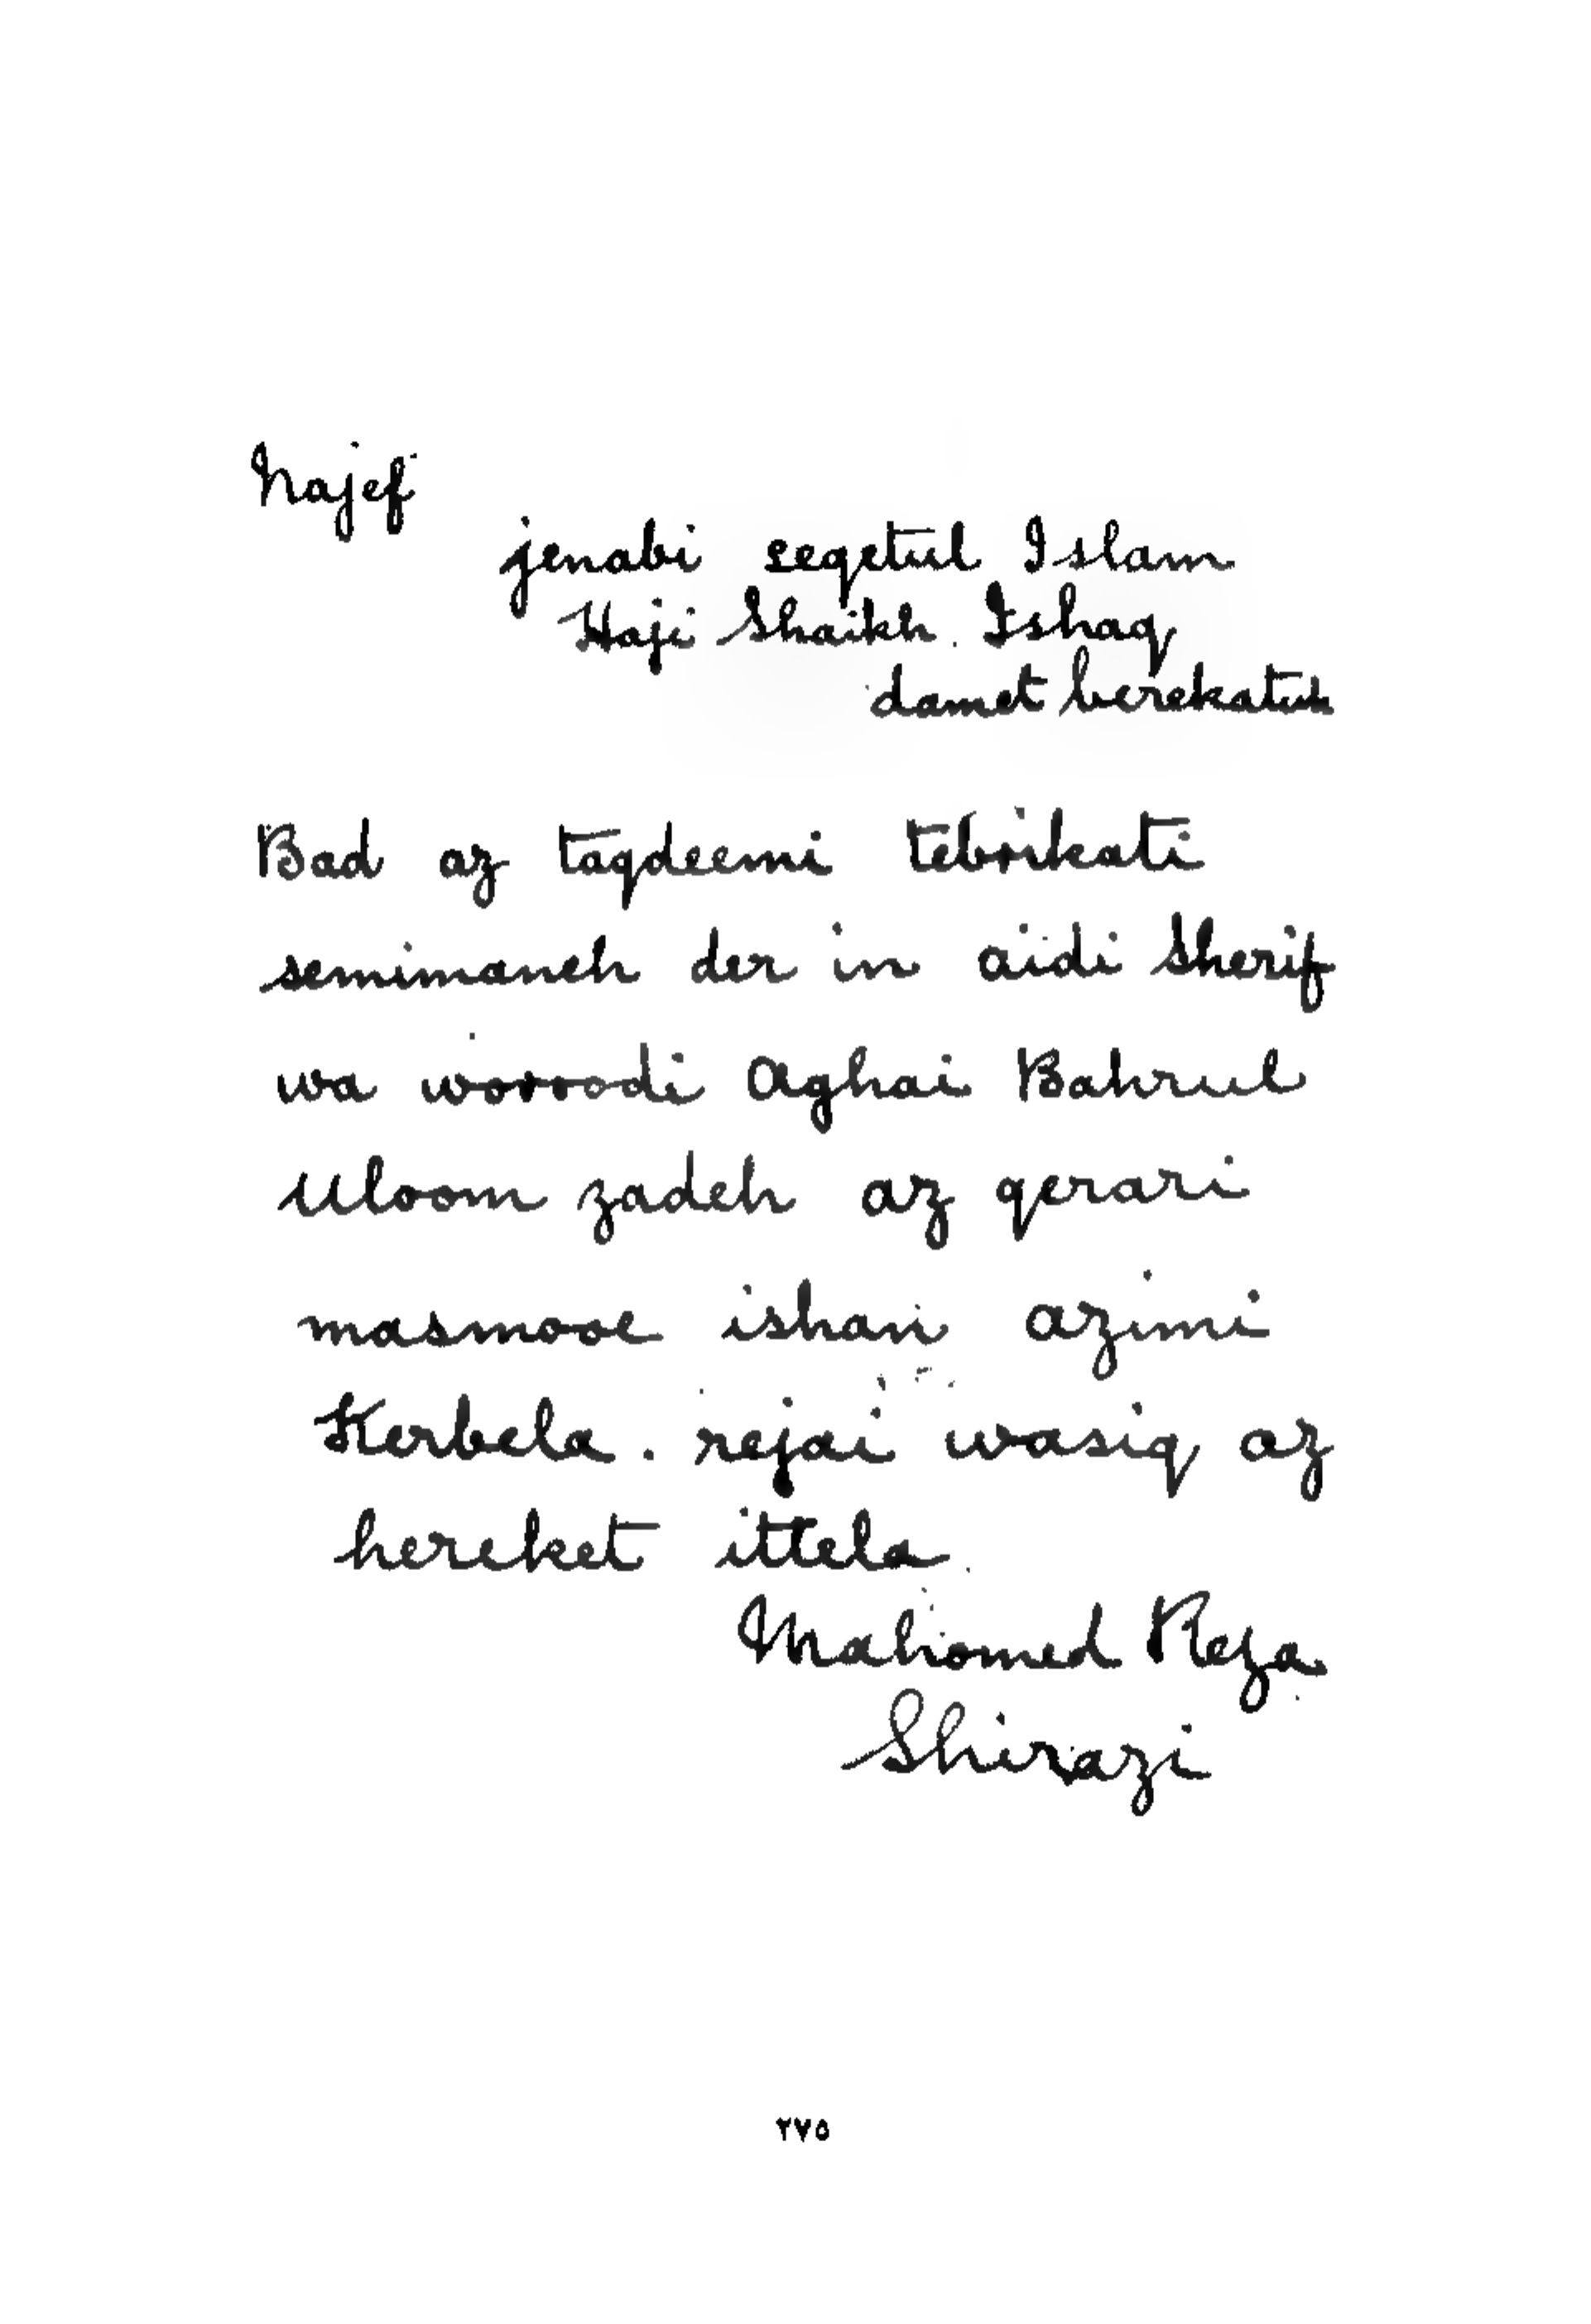 Najef
jenabi seqetul Islam
Haji Shaikh. Ishaq
damet berekatuh
Bad az taqdeemi tebrikati
semimaneh der in aidi Sherif
wa worroodi Aghai Bahrul
Uloom zadeh az qerari
masmooe ishan azimi
Kerbela. rejai wasiq az
hereket ittela.
Mahomed Reza
Shirazi
٢٧٥